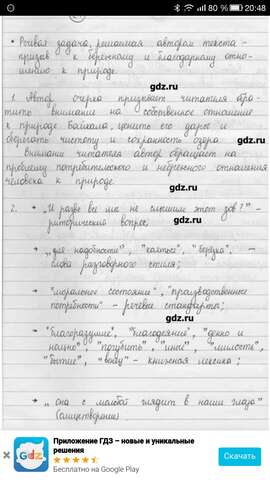 80 % 20:48
• Речевая задача, решаемая автором текста –
призыв к бережному и благодарному отно-
шению к природе.
gdz.ru
gdz.ru
1. Автор очерка призывает читателя обра-
тить внимание на собственное отношение
к природе Байкала, ценить его дары и
сберегать чистоту и сохранность озера.
Внимание читателя автор обращает на
проблему потребительского и небрежного отношения
человека к природе.
gdz.ru
2. → "И разве все мы не слышим этот зов?" –
риторический вопрос;
gdz.ru
→ "для надобности", "взятых", –
слова разговорного стиля;
→ "моральное состояние", "производственные
потребности" – речевые стандарты;
gdz.ru
→ "благоразумие", "благодеяний", "денно и
нощно", "погубить", "иные", "милость",
"бытие", – книжная лексика;
→ "она с мольбой глядит в наши глаза"
(олицетворение)
gdz.ru
Приложение ГДЗ – новые и уникальные
решения
Бесплатно на Google Play
Скачать
gdz